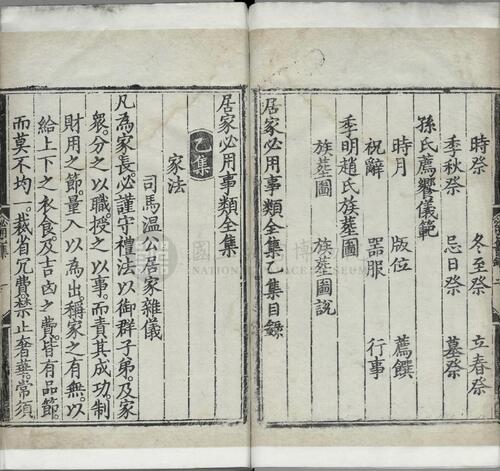 時祭 冬至祭 立春祭
季秋祭 忌日祭 墓祭
孫氏薦饗儀範
時月 版位 薦饌
祝辭 器服 行事
季明趙氏族墓圖
族墓圖 族墓圖說
居家必用事類全集乙集目錄
居家必用事類全集
乙集
家法
司馬溫公居家雜儀
凡為家長必謹守禮法以御群子弟及家
衆。分之以職授之以事。而責其成功。制
財用之節。量入以為出。稱家之有無。以
給上下之衣食及吉凶之費。皆有品節。
而莫不均一。裁省冗費。禁止奢華。常須